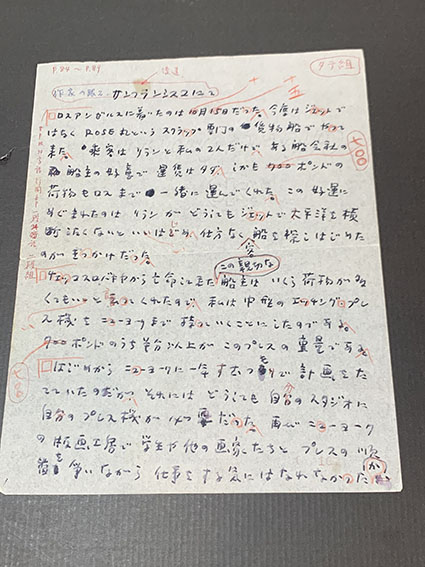 P.84〜P.89
タテ組
作家の眼2. サンフランシスコにて
ロスアンゼルスに着いたのは10月15日だった。今度はジェットで
はなく Rose 丸というスクラップ専門の貨物船でやって
来た。乗客はリランと私の2人だけで、ある船会社の
船主の好意で運賃はタダ、しかも ポンドの
荷物もロスまで一緒に運んでくれた。この好運に
めぐまれたのは、リランがどうしてもジェットで太平洋を横
断したくないといいはじめ、仕方なく船を探しはじめた
のがきっかけだった。
チェッコスロバキヤから亡命して来た この親切な 船主は、いくら荷物が多
くてもいいと言ってくれたので、私は中型のエッチング・プレ
ス機をニューヨークまで持っていくことにしたのである。
700
ポンドのうち半分以上がこのプレスの重量である
はじめからニューヨークに一年すむつもりで計画をた
てていたのだが、それにはどうしても自分のスタジオに
自分のプレス機が必要だった。再びニューヨーク
の版画工房で学生や他の画家たちとプレスの順
番を争いながら仕事をする気にはなれなかったか